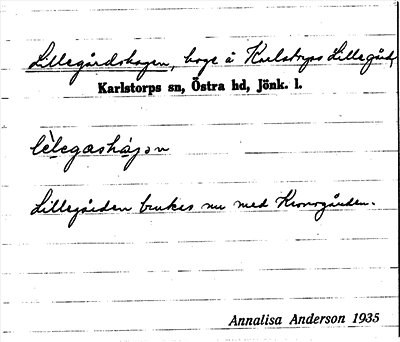 Lillegårdshagen, hage å Karlstorps Lillegård,
Karlstorps sn, Östra hd, Jönk. l.
lèlegașhágɔn
Lillegården brukes nu med Kronogården.
Annalisa Anderson 1935